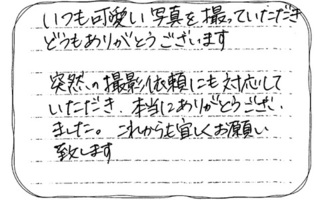 いつも可愛い写真を撮っていただき
どうもありがとうございます
突然の撮影依頼にも対応して
いただき、本当にありがとうござい
ました。これからも宜しくお願い
致します